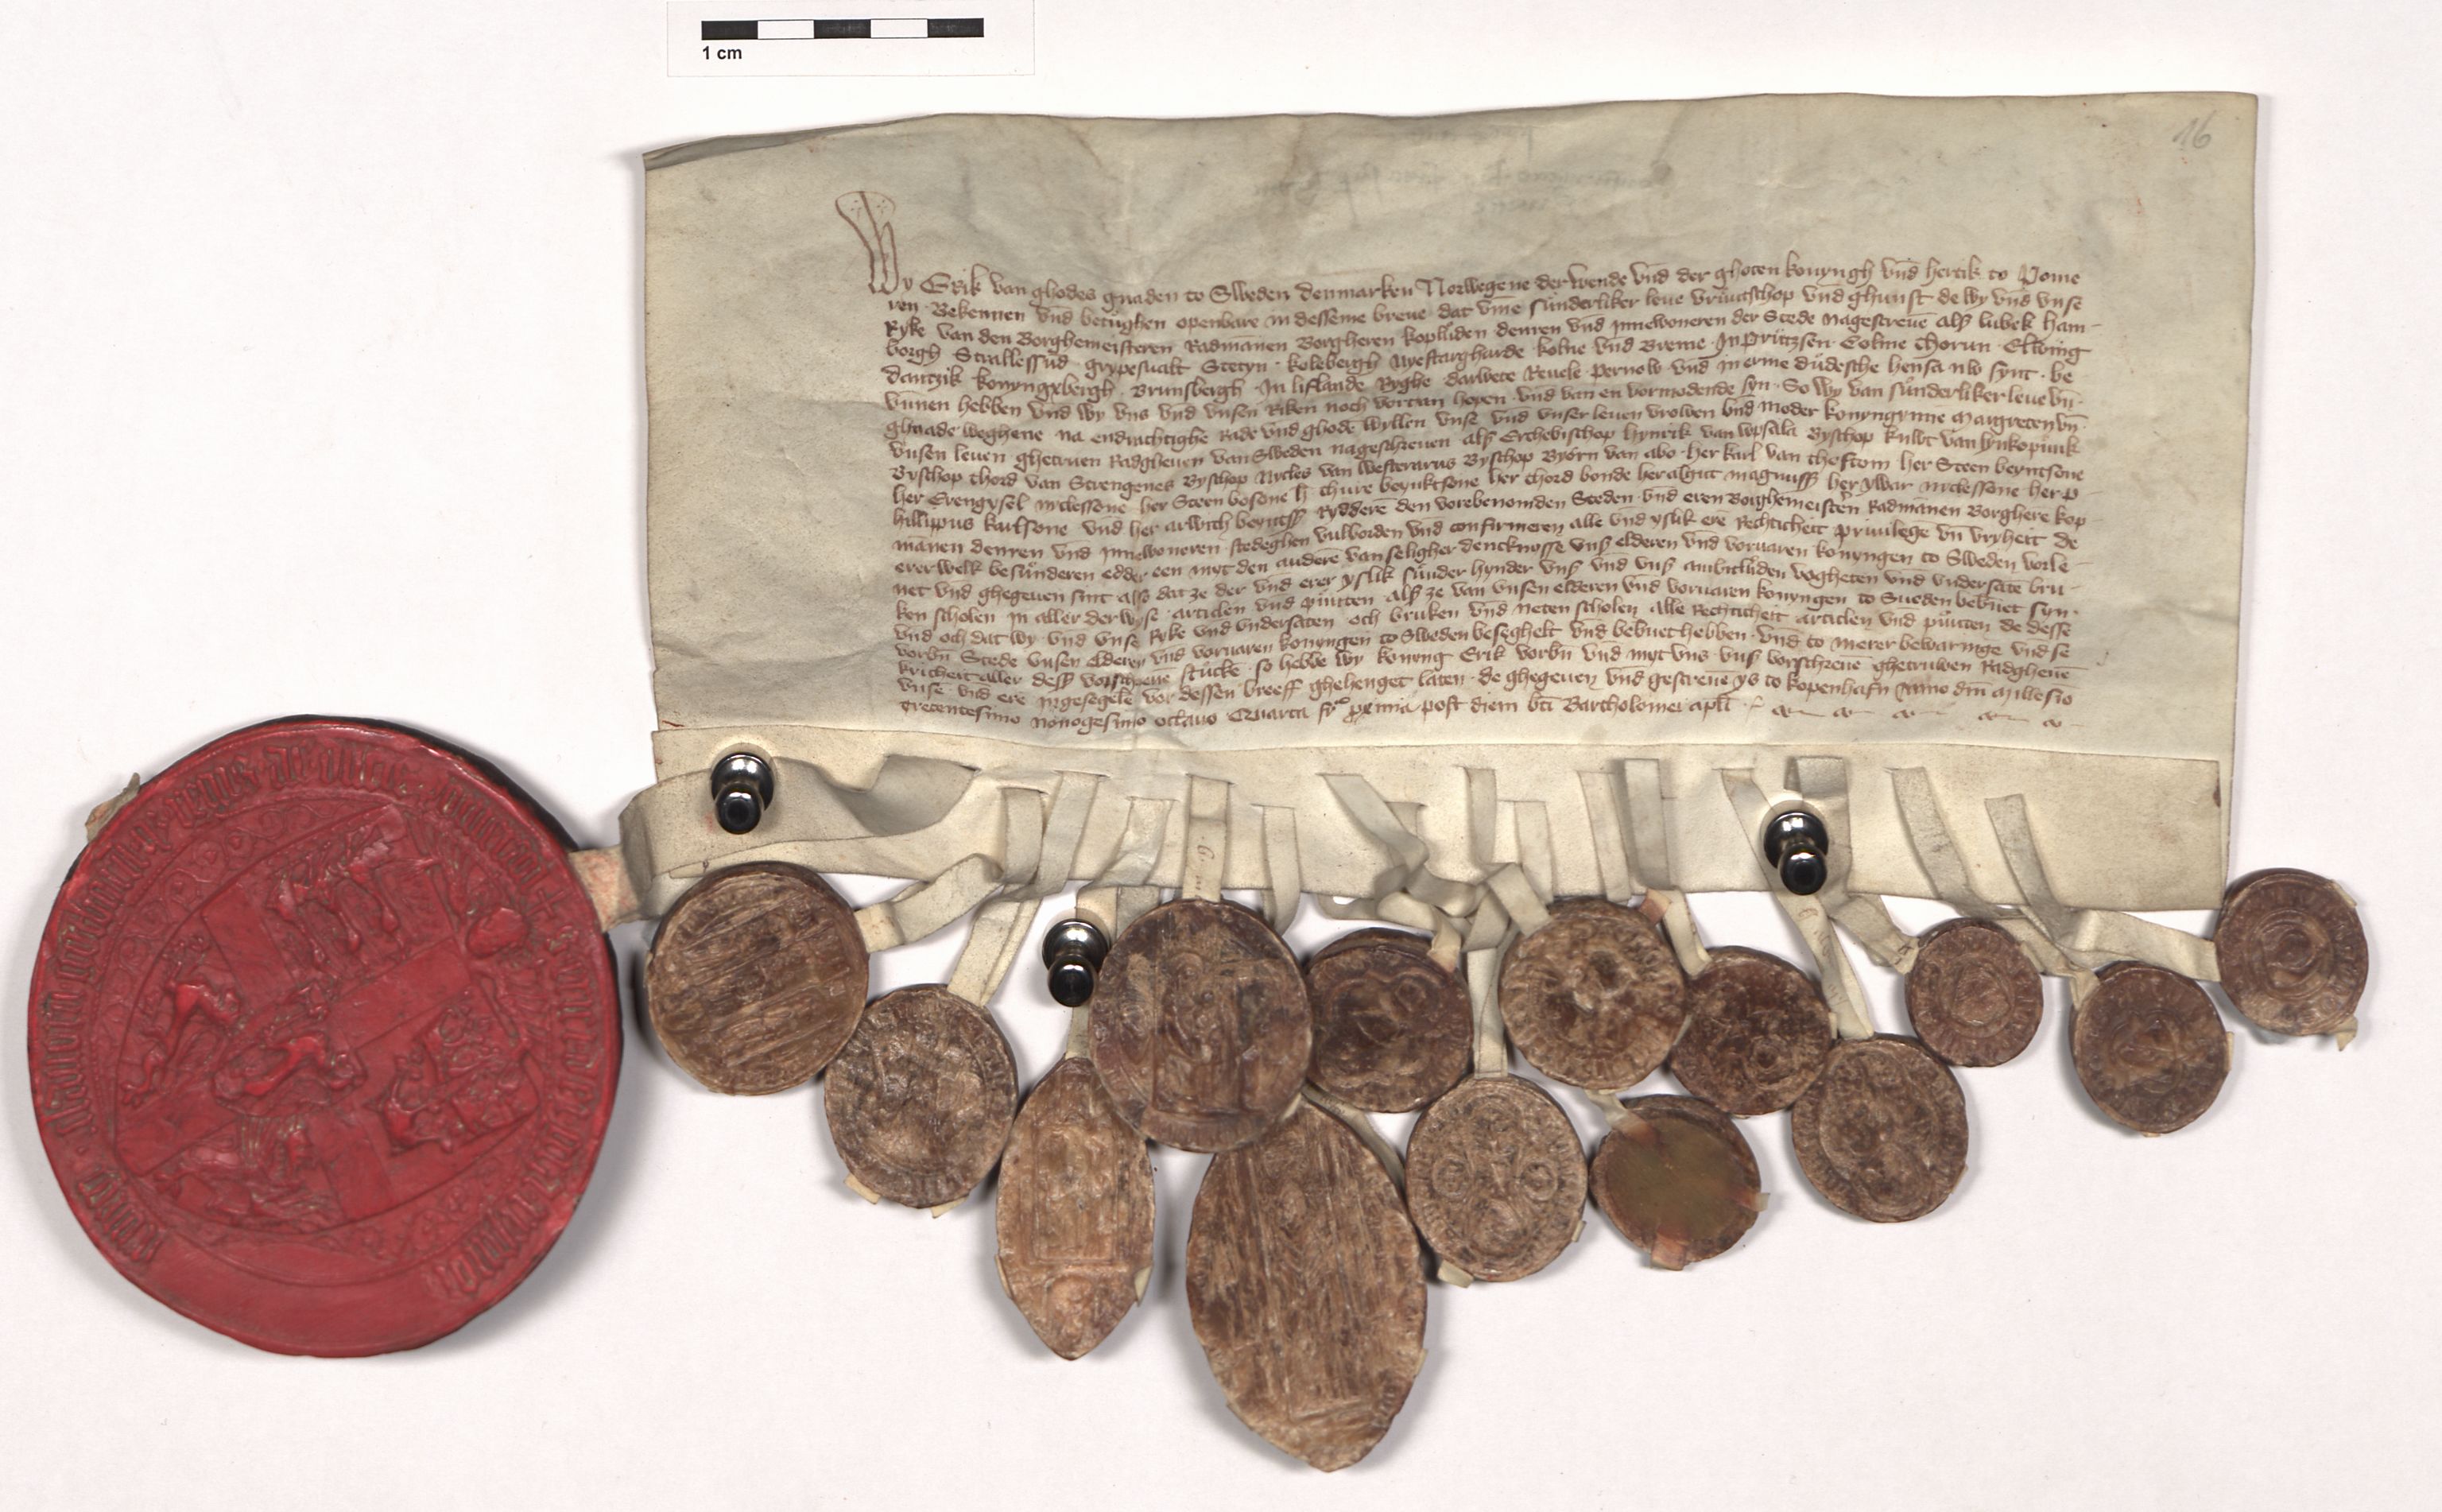 1 cm
16
Wy Erik van ghodes gnaden to Sweden denmarken Norwegene der wende vnd der ghoten konyngh vnd hertik to Pome
ren Bekennen vnd betughen openbare in desseme breue dat vme sunderliker leue vruntschop vnd ghunst de wy vnd vnse
Ryke van den Borghemeisteren Radmanen Borgheren kopluden denren vnd Inneworneren der Stede nagescreuen als lubek ham-
borgh Strallessund grypesualt Stetyn kolebergh Nyestargharde kolne vnd Breme In prutzsen Colme thorun Elwing
dantzik konyngxbergh Brunsbergh In liflande Ryghe darwete Reuele pernow vnd in erme dudesche hensa nw synt be
vunnen hebben vnd wy vns vnd vnsen Riken noch vortan hopen vnd van en vormodende syn So wy van sunderliker leue vn
ghnade weghene na endrachtighe Rade vnd ghode wyllen vnse vnd vnser leuen vrowen vnd moder konyngynne Margreten vn
vnsen leuen ghetruen Radgheuen van Sweden nagescreuen als Erchebischop hynrik van vpsala Byschop knwt van lynkopink
Byschop thord van Strengenes Byschop Nycles van westerarus Byschop Byorn van abo her karl van thoftom her Steen beyntsone
her Erengysel nyclessone her Steen bosone h thure beynktsone her thord bonde her algut magnuss her ywar nyclessone her p-
hillippus karlsone vnd her arwith beyntss Ryddere den vorebenomden Steden vnd eren Borghemeisteren Radmanen Borghere kop
manen denren vnd Inneworneren stedeghen vulborden vnd confirmeren alle vnd yslik ere Rechticheit priuilege vn vryheit de
erer welk besunderen edder een myt den andere van seligher dencknosse vns elderen vnd voruaren konyngen to Sweden vorle-
net vnd ghegeuen sint also dat ze der vnd erer yslik sunder hynder vns vnd vns amtluden vogheten vnd vndersate bru-
ken scholen in aller der wyse articlen vnd puncten als ze van vnsen elderen vnd voruaren konyngen to Sueden bebreuet syn
vnd och dat wy vnd vnse Ryke vnd vndersaten och bruken vnd neten scholen alle Rechticheit articlen vnd puncten de desse
vorbn Stede vnsen elderen vnd voruaren konyngen to Sweden beseghelt vnd bebreuet hebben vnd to merer bewaringe vnd se
kricheit aller dess vorschreuene stucke so hebbe wy konyng Erik vorbn vnd myt vns vns vorschreuene ghetruwen Radgheuene
vnse vnd ere Ingesegele vor dessen breeff ghehenget laten de ghegeuen vnd gescreue ys to kopenhafn Anno dni Millesio
trecentesimo nonogesimo octauo Quarta fr proxima post diem bti Bartholomei apli